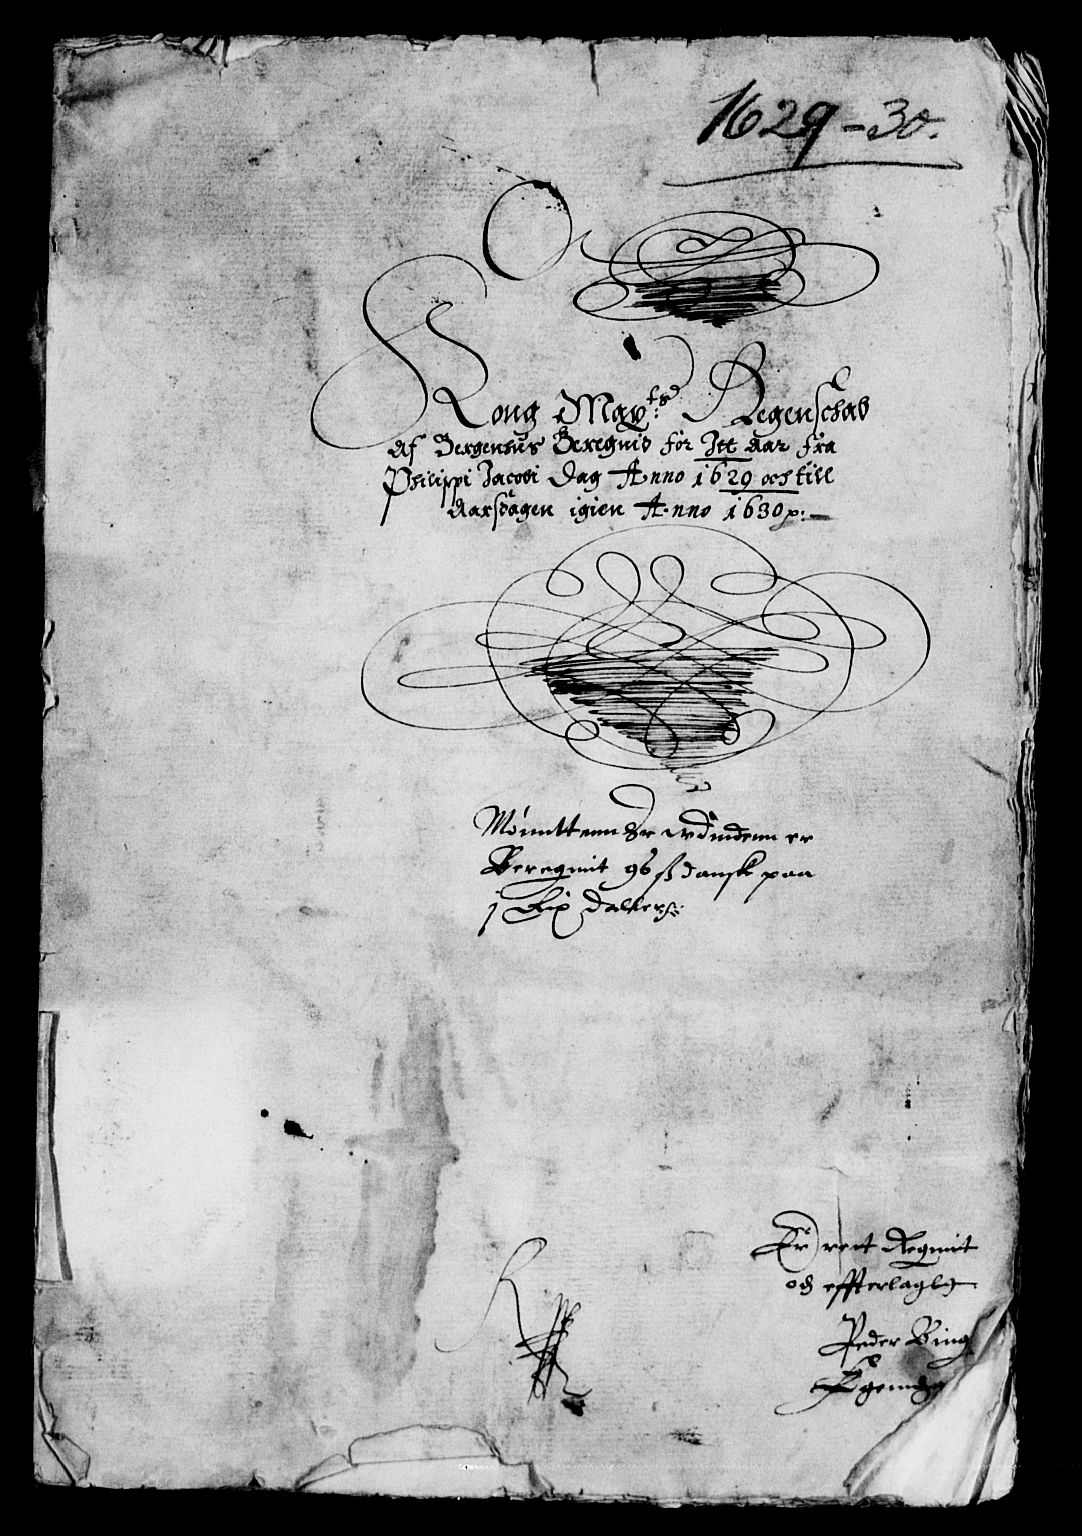 1629-30.
Kong May:ts Regenschab
Af Bergenhus Beregnid för Itt Aar fra
Philippi Jacobi Dag Anno 1629 och till
Aarsdagen igien Anno 1630 p:
Mönntten er
Beregnit 96 ß dansk paa
j Rix daller
Er rett Regnit
och effterlagt
Peder Bing
Egenndh